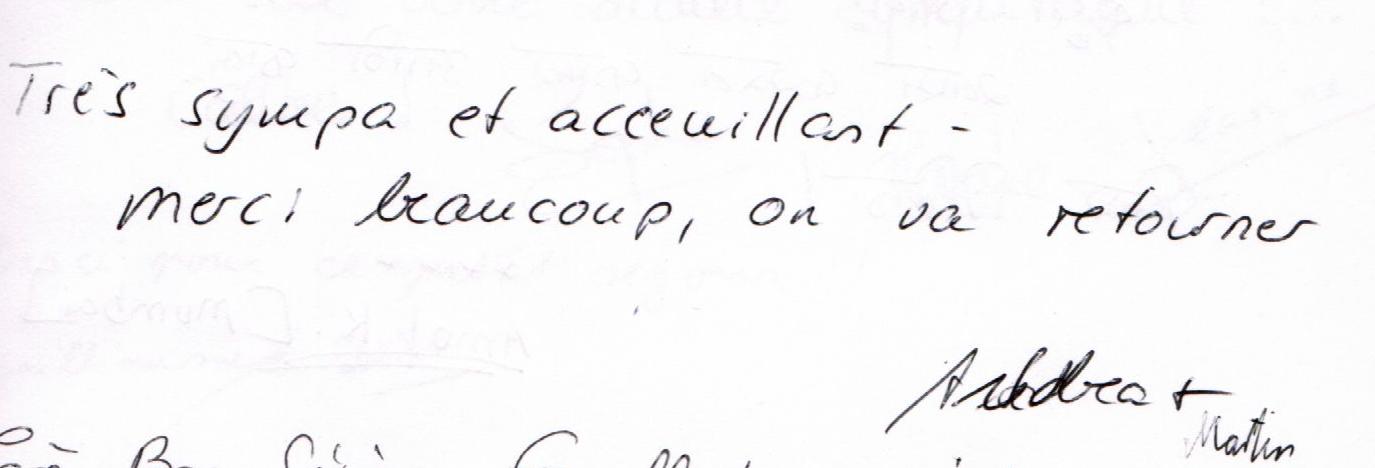 Très sympa et acceuillant -
merci beaucoup, on va retourner
Andrea +
Martin